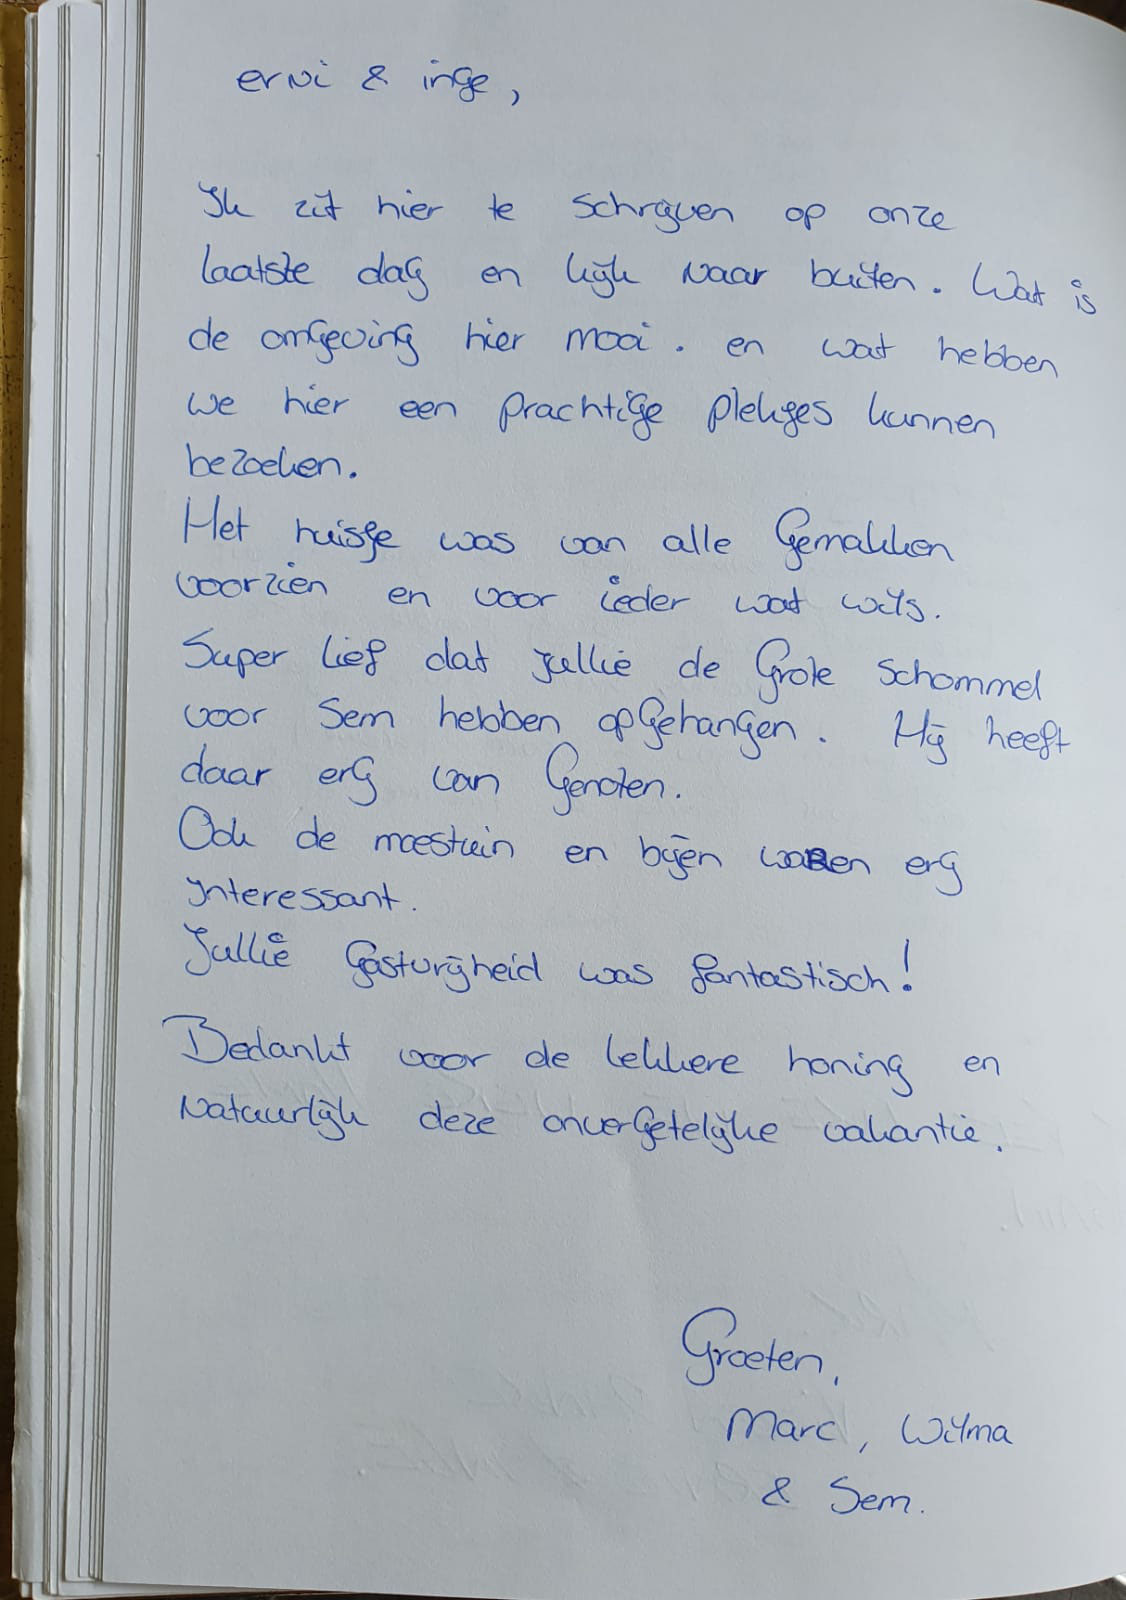 ervi & inge,
Ik zit hier te schrijven op onze
laatste dag en kijk naar buiten. Wat is
de omgeving hier mooi. en wat hebben
we hier een prachtige plekjes kunnen
bezoeken.
Het huisje was van alle Gemakken
voorzien en voor ieder wat wils.
Super lief dat jullie de Grote schommel
voor Sem hebben opgehangen. Hij heeft
daar erg van Genoten.
Ook de moestuin en bijen waren erg
interessant.
Jullie Gastvrijheid was fantastisch!
Bedankt voor de lekkere honing en
Natuurlijk deze onvergetelijke vakantie.
Groeten,
Marc, Wilma
& Sem.